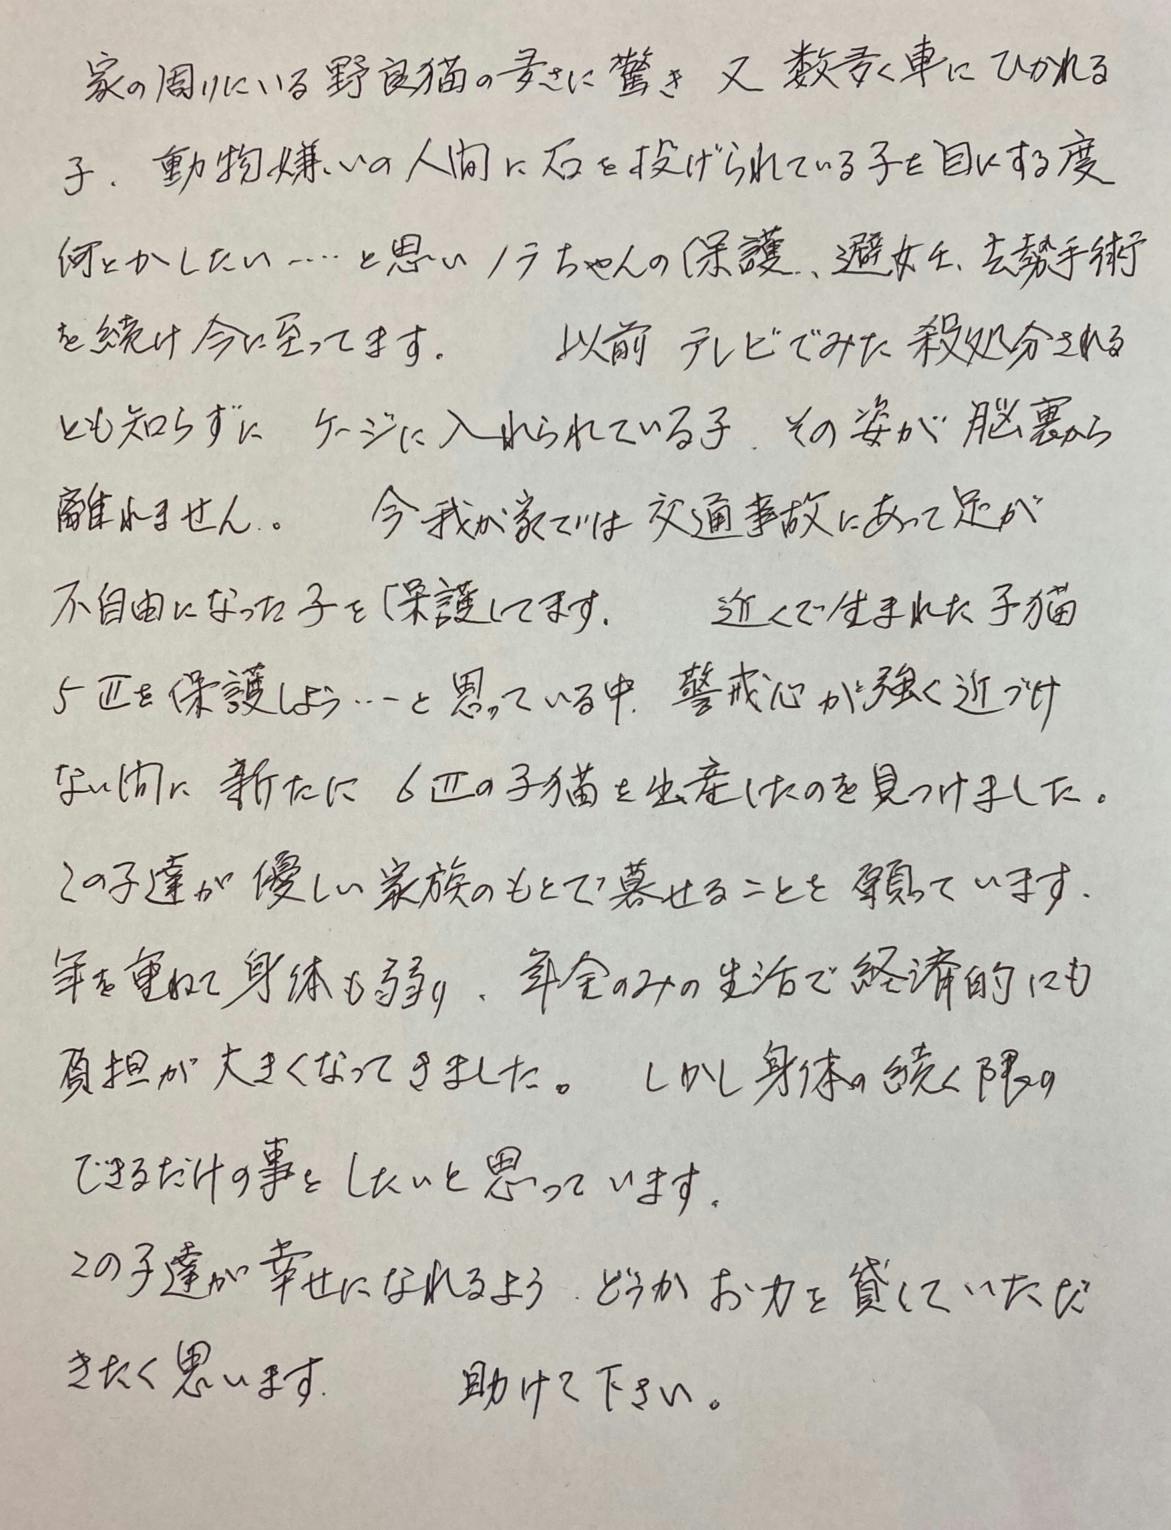 家の周りにいる野良猫の多さに驚き 又 数多く車に ひかれる
子、動物嫌いの人間に石を投げられている子を目にする度
何とかしたい…‥と思いノラちゃんの保護、避妊、去勢手術
を続け今に至ってます。 以前 テレビでみた 殺処分される
とも知らずに ケージに入れられている子、その姿が 脳裏から
離れません。 今我が家では交通事故にあって足が
不自由になった子を保護してます。 近くで生まれた子猫
5匹を保護しよう…ーと思っている中、警戒心が強く近づけ
ない間に 新たに 6匹の子猫を出産したのを見つけました。
この子達が優しい家族のもとで暮せることを願っています。
年を重ねて身体も弱り、年金のみの生活で経済的にも
負担が大きくなってきました。 しかし身体の続く限り
できるだけの事をしたいと思っています。
この子達が幸せになれるよう、どうか お力を貸していただ
きたく思います。 助けて下さい。